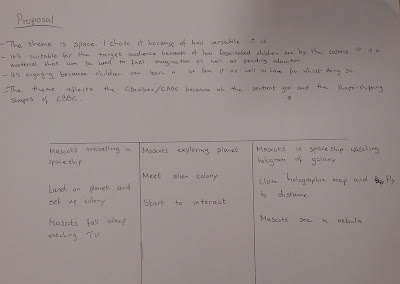 Proposal
- The theme is space. I chose it because of how versatile it is.
- It's suitable for the target audience because of how fascinated children are by the cosmos. It is a
material that can be used to fuel imagination as well as providing education.
- It's engaging because children can learn a lot from it as well as have fun whilst doing so.
- The theme reflects the CBeebies/CBBC because of the sentient and the shape-shifting
shapes of CBBC.
Mascots travelling in
spaceship
Land on planet and
set up colony
Mascots fall asleep
watching TV
Mascots exploring planet
Meet alien colony
Start to interact
Mascots in spaceship watching
hologram of galaxy
Close holographic map and fly
to distance
Mascots see a nebula